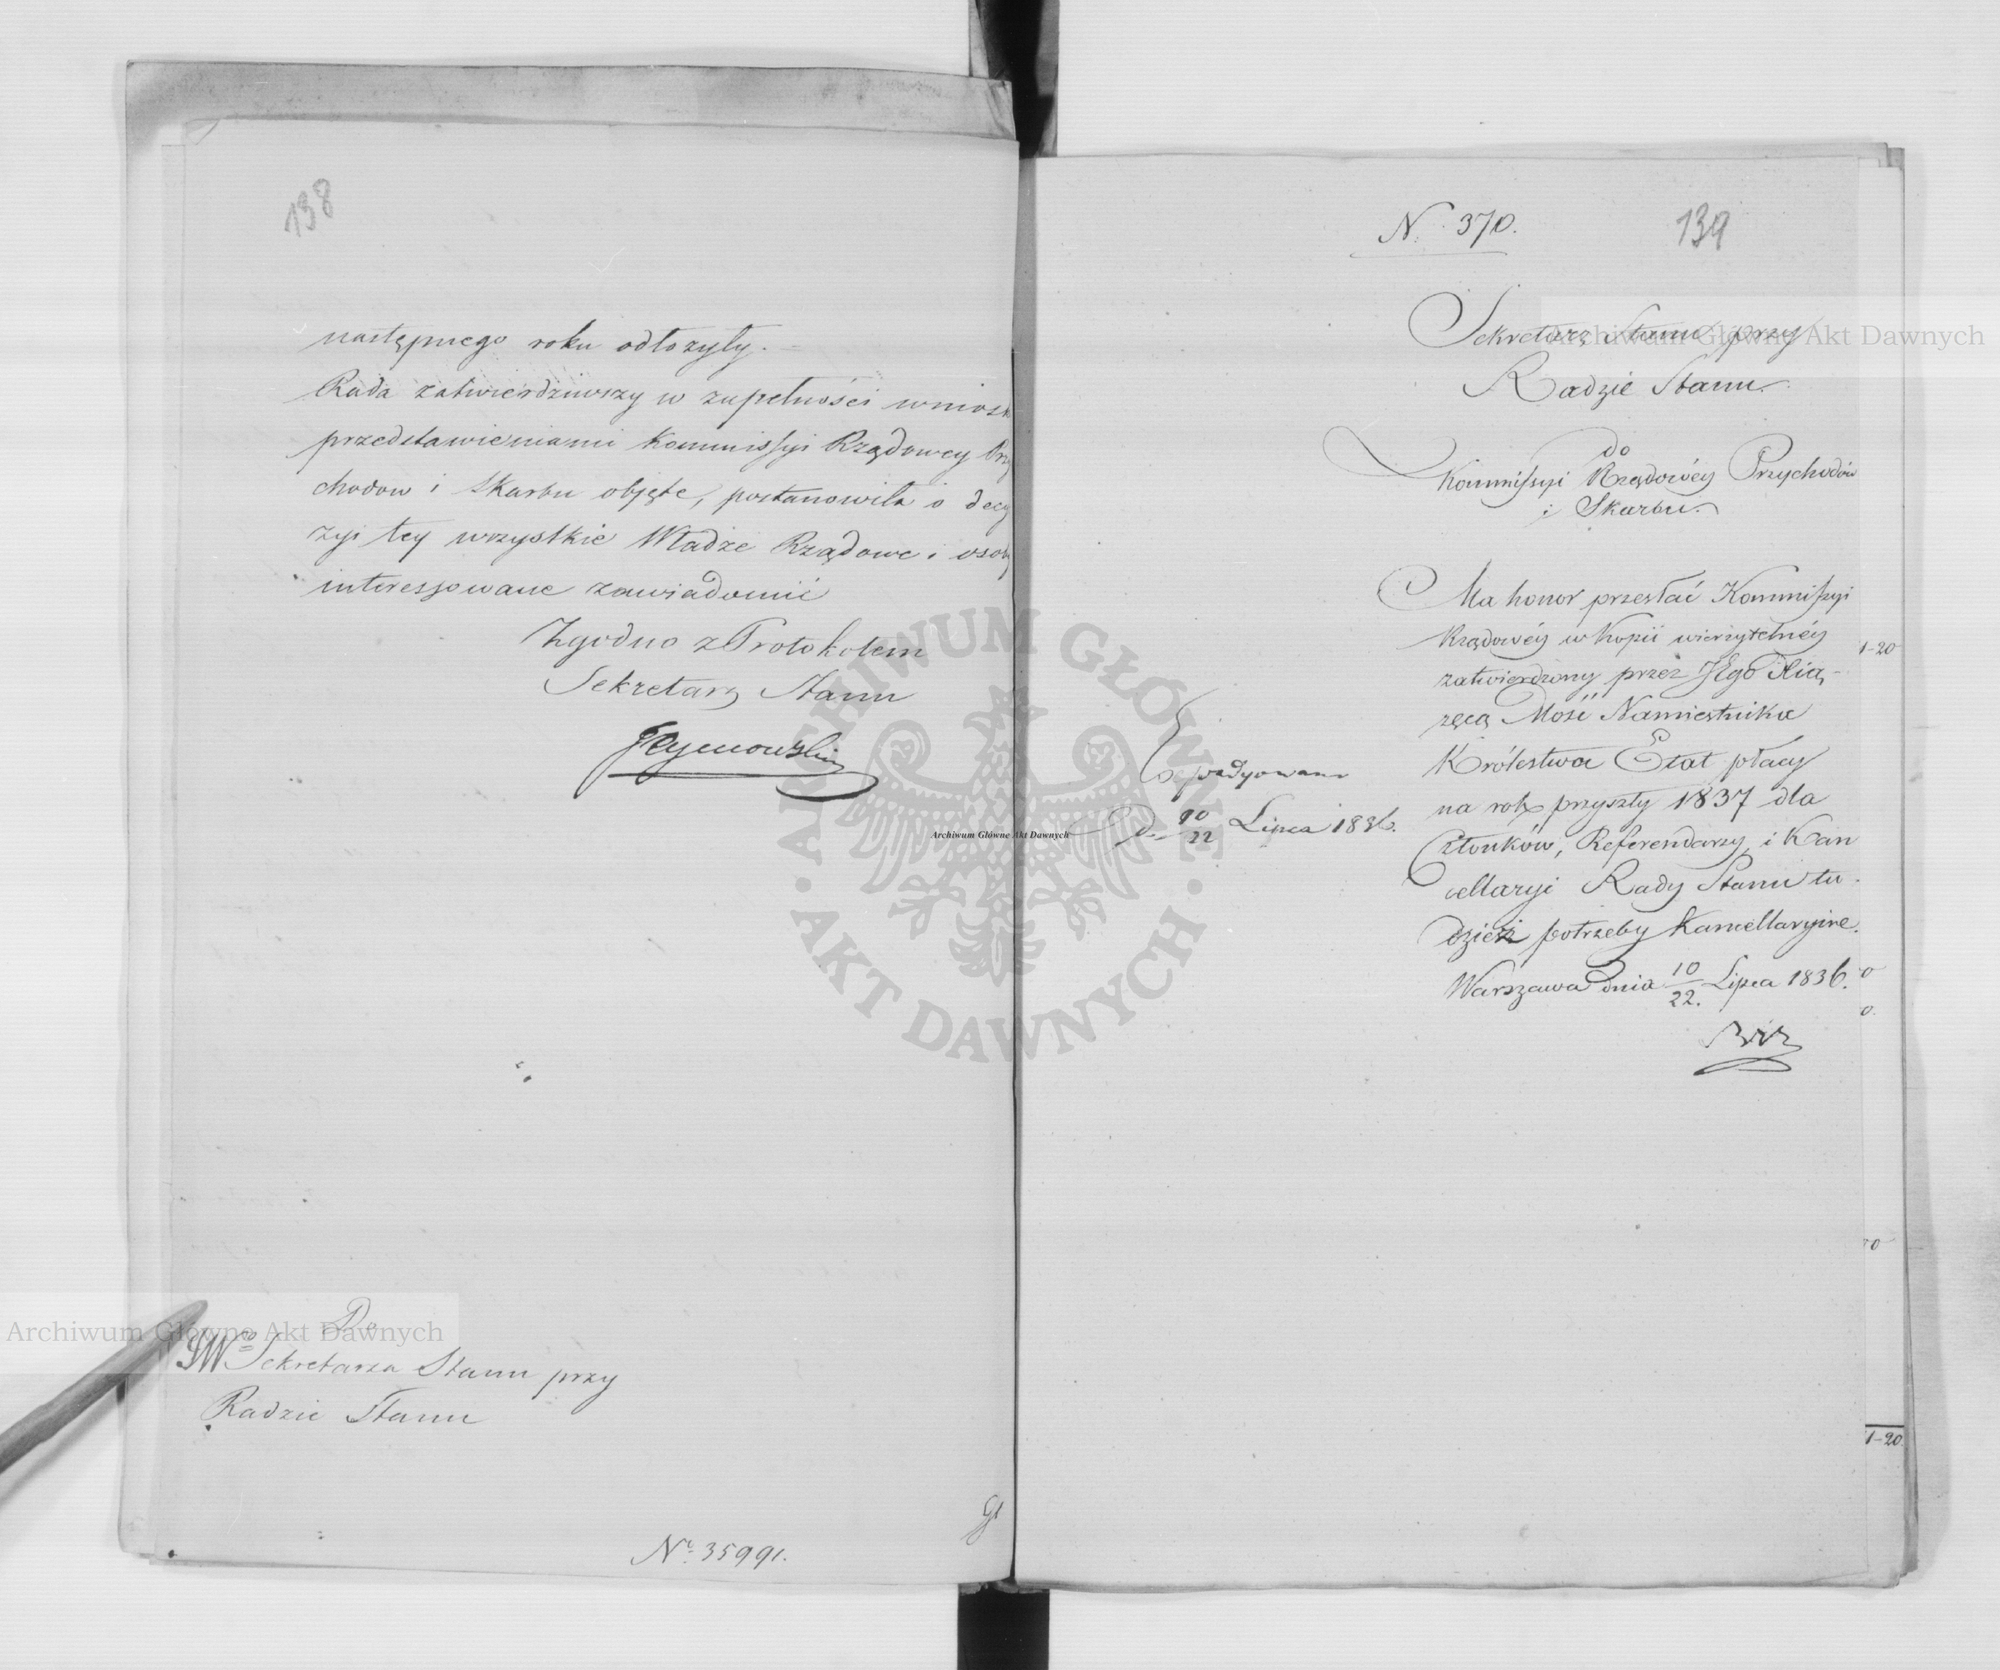 138
następnego roku odłożyły. –
Rada zatwierdziwszy w zupełności wniosk
przedstawieniami Kommissyi Rządowey Przy
chodow i Skarbu objęte, postanowiła o decy
zyi tey wszystkie Władze Rządowe i osoby
interessowane zawiadomić
Zgodno z Protokołem
Sekretarz Stanu
Do
JW° Sekretarza Stanu przy
Radzie Stanu
Nr 35991.
139
N. 370.
Sekretarz Stanu przy
Radzie Stanu.
do
Kommissyi Rządowéy Przychodów
i Skarbu.
Ma honor przesłać Kommissyi
Rządowéy w Kopii wierzytelnéy
zatwierdzony przez JEgo Xią-
żęcą Mość Namiestnika
Królestwa Etat płacy
na rok przyszły 1837 dla
Członków, Referendarzy i Kan
cellaryi Rady Stanu tu-
dzież potrzeby Kancellaryine.
Warszawa dnia 10/22. Lipca 1836.
Expedyowano
d. 10/22 Lipca 1836.
1-20
0
0.
70
1-20
Archiwum Główne Akt Dawnych
Archiwum Główne Akt Dawnych
Archiwum Główne Akt Dawnych
ARCHIWUM GŁÓWNE
AKT DAWNYCH